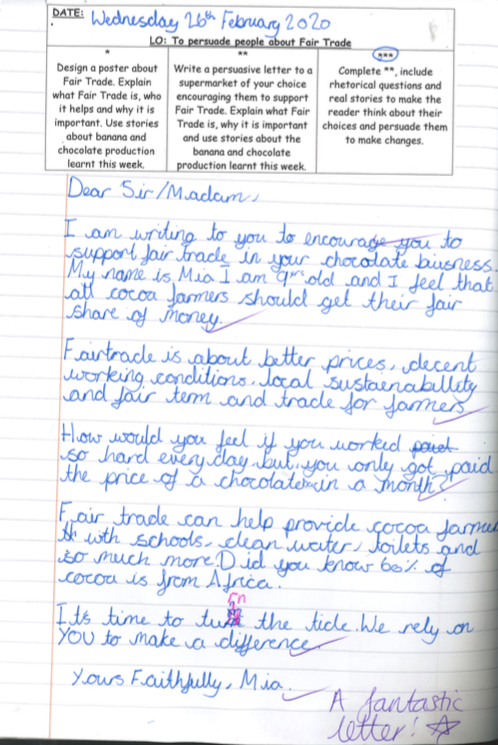 DATE: Wednesday 26th February 2020
LO: To persuade people about Fair Trade
*
Design a poster about
Fair Trade. Explain
what Fair Trade is, who
it helps and why it is
important. Use stories
about banana and
chocolate production
learnt this week.
**
Write a persuasive letter to a
supermarket of your choice
encouraging them to support
Fair Trade. Explain what Fair
Trade is, why it is important
and use stories about the
banana and chocolate
production learnt this week.
***
Complete **, include
rhetorical questions and
real stories to make the
reader think about their
choices and persuade them
to make changes.
Dear Sir/Madam,
I am writing to you to encourage you to
support fair trade in your chocolate buisness.
My name is Mia I am 9yrs old and I feel that
all cocoa farmers should get their fair
share of money.
Fairtrade is about better prices, decent
working conditions, local sustaenabillity
and fair term and trade for farmers
How would you feel if you worked
so hard every day but, you only got paid
the price of a chocolate in a month?
Fair trade can help provide cocoa farmer
with schools, clean water, toilets and
so much more. Did you know 60% of
cocoa is from Africa.
It's time to turn the tide. We rely on
YOU to make a difference.
Yours Faithfully, Mia.
A fantastic
letter!